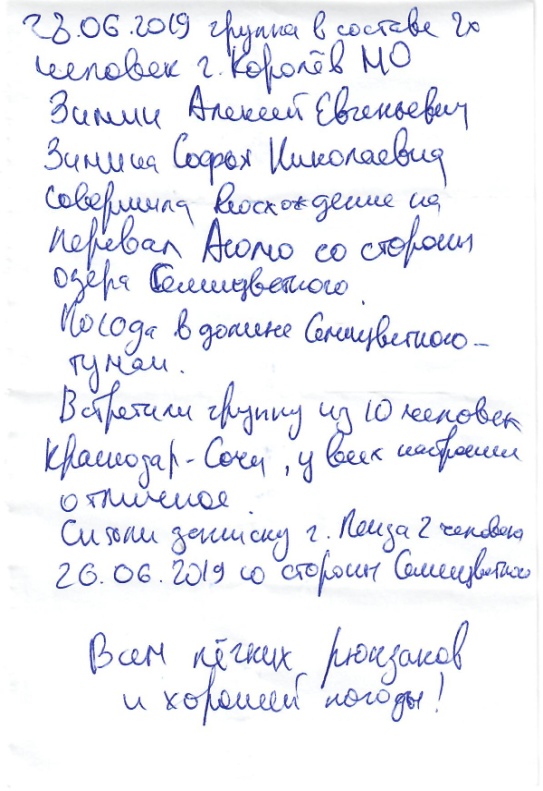 28.06.2019 группа в составе 2х
человек г. Королёв МО
Зимин Алексей Евгеньевич
Зимина Софья Николаевна
совершила восхождение на
перевал Асомо со стороны
озера Семицветного.
Погода в долине Семицветного –
туман.
Встретили группу из 10 человек
Краснодар-Сочи, у всех настроение
отличное.
Сняли записку г. Пенза 2 человека
26.06.2019 со стороны Семицветного
Всем лёгких рюкзаков
и хорошей погоды!